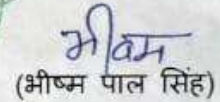 भीष्म
(भीष्म पाल सिंह)